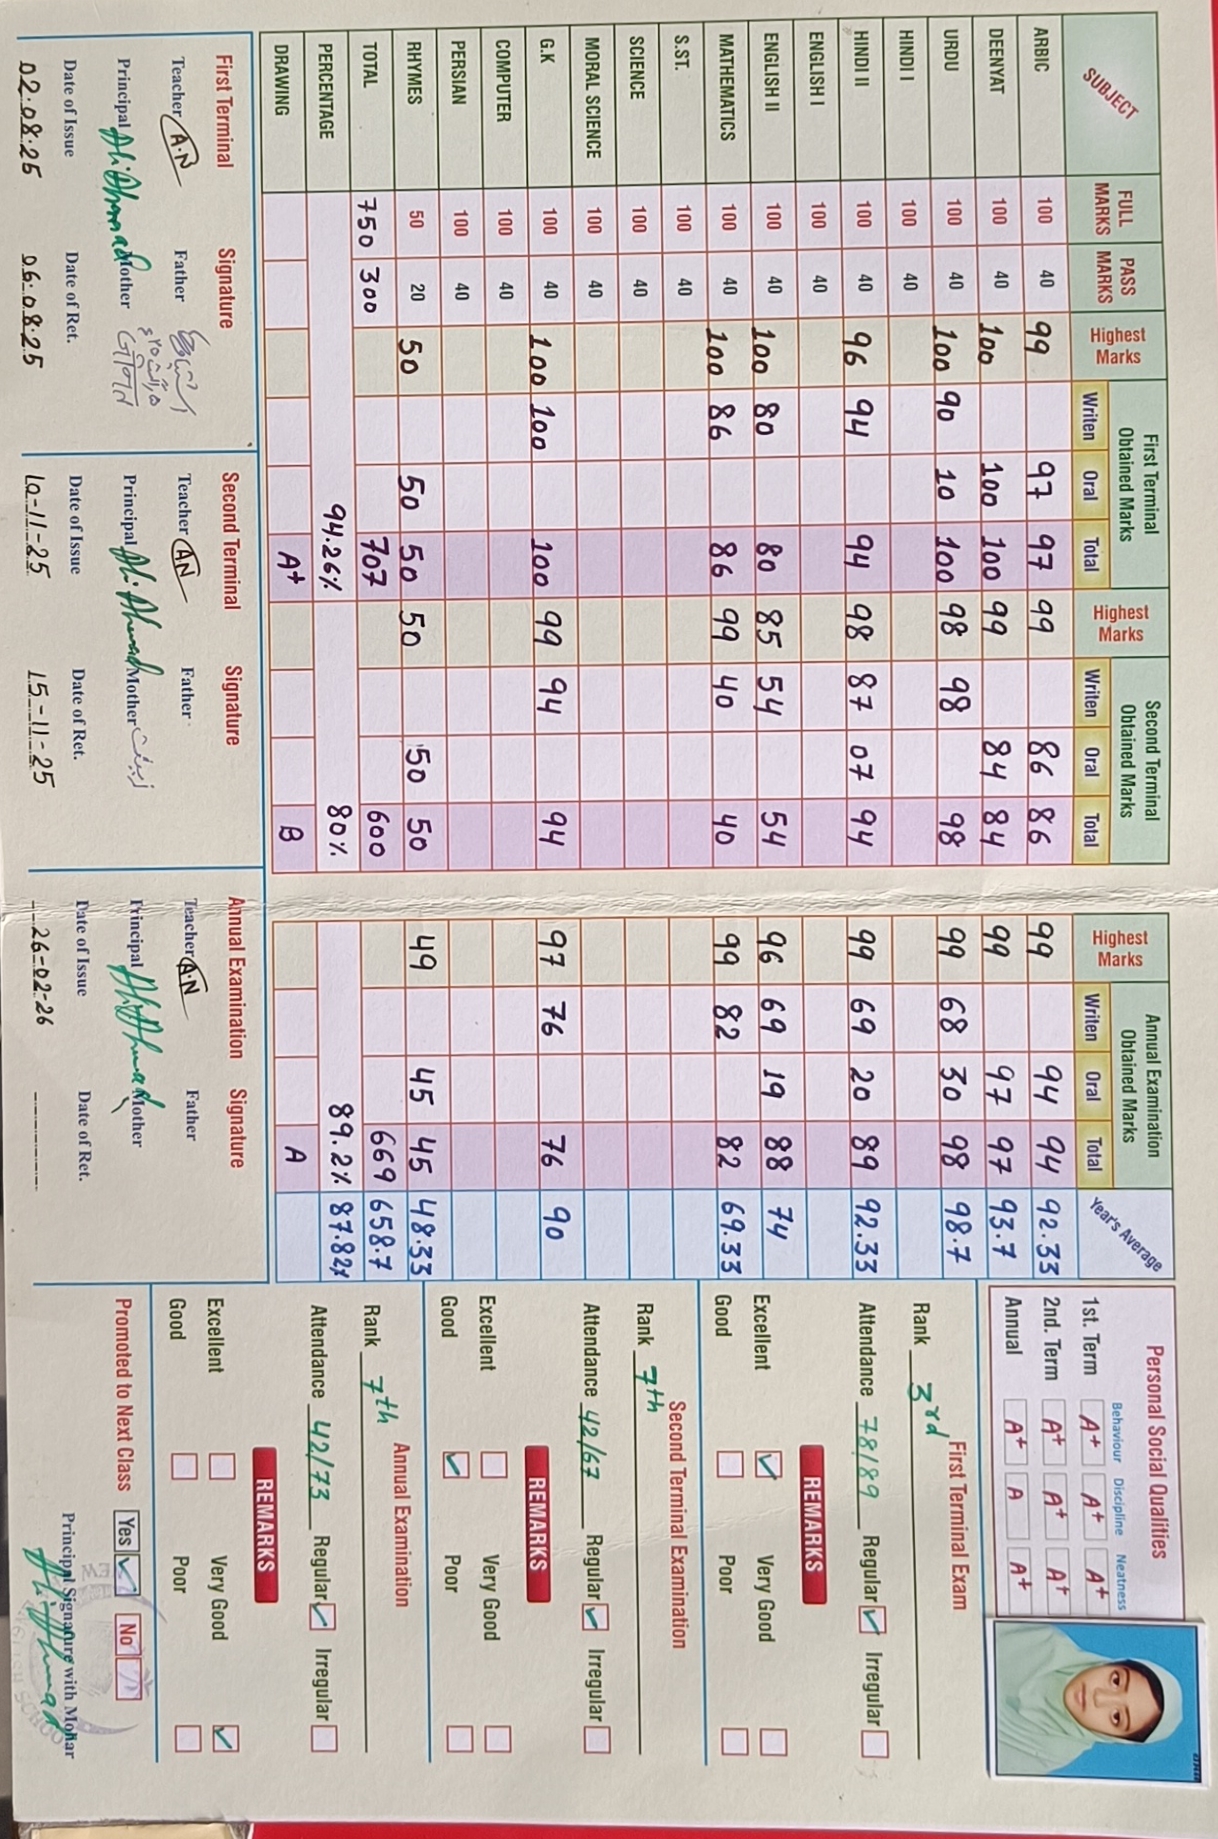 SUBJECT FULL MARKS PASS MARKS Highest Marks First Terminal Obtained Marks Writen Oral Total Highest Marks Second Terminal Obtained Marks Writen Oral Total Highest Marks Annual Examination Obtained Marks Writen Oral Total Year's Average
ARBIC 100 40 99 97 97 99 86 86 99 94 94 92.33
DEENYAT 100 40 100 100 100 99 84 84 99 97 97 93.7
URDU 100 40 100 90 10 100 98 98 98 99 68 30 98 98.7
HINDI I 100 40
HINDI II 100 40 96 94 94 98 87 07 94 99 69 20 89 92.33
ENGLISH I 100 40
ENGLISH II 100 40 100 80 80 85 54 54 96 69 19 88 74
MATHEMATICS 100 40 100 86 86 99 40 40 99 82 82 69.33
S.ST. 100 40
SCIENCE 100 40
MORAL SCIENCE 100 40
G.K 100 40 100 100 100 99 94 94 97 76 76 90
COMPUTER 100 40
PERSIAN 100 40
RHYMES 50 20 50 50 50 50 50 50 49 45 45 48.33
TOTAL 750 300 707 600 669 658.7
PERCENTAGE 94.26% 80% 89.2% 87.82%
DRAWING A+ B A
First Terminal Signature
Teacher A.N Father
Principal Ali Ahmad Mother
Date of Issue Date of Ret.
02.08.25 06.08.25
Second Terminal Signature
Teacher AN Father
Principal Ali Ahmad Mother زینت
Date of Issue Date of Ret.
10-11-25 15-11-25
Annual Examination Signature
Teacher A.N Father
Principal Ali Ahmad Mother
Date of Issue Date of Ret.
26-02-26
Personal Social Qualities
Behaviour Discipline Neatness
1st. Term A+ A+ A+
2nd. Term A+ A+ A+
Annual A+ A A+
First Terminal Exam
Rank 3rd
Attendance 78/89 Regular Irregular
REMARKS
Excellent Very Good
Good Poor
Second Terminal Examination
Rank 7th
Attendance 42/67 Regular Irregular
REMARKS
Excellent Very Good
Good Poor
Annual Examination
Rank 7th
Attendance 42/73 Regular Irregular
REMARKS
Excellent Very Good
Good Poor
Promoted to Next Class Yes No
Principal Signature with Mohar
Ali Ahmad